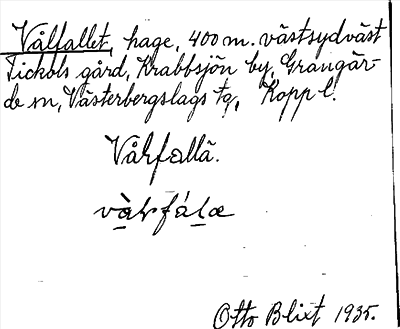 Vålfallet, hage, 400 m. västsydväst
Tickols gård, Krabbsjön by, Grangär-
de sn, Västerbergslags tg, Kopp l.
Vålfallä.
Otto Blixt 1935.